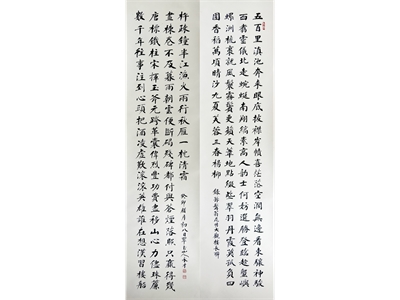 五百里滇池奔來眼底披襟岸幘喜茫茫空闊無邊看東驤神駿
西翥靈儀北走蜿蜒南翔縞素高人韻士何妨選勝登臨趁蟹嶼
螺洲梳裹就風鬟霧鬢更蘋天葦地點綴些翠羽丹霞莫孤負四
圍香稻萬頃晴沙九夏芙蓉三春楊柳
錄孫髯翁昆明大觀樓長聯
數千年往事注到心頭把酒凌虛歎滾滾英雄誰在想漢習樓船
唐標鐵柱宋揮玉斧元跨革囊偉烈豐功費盡移山心力儘珠簾
畫棟卷不及暮雨朝雲便斷碣殘碑都付與蒼煙落照只贏得幾
杵疎鐘半江漁火兩行秋雁一枕清霜
癸卯